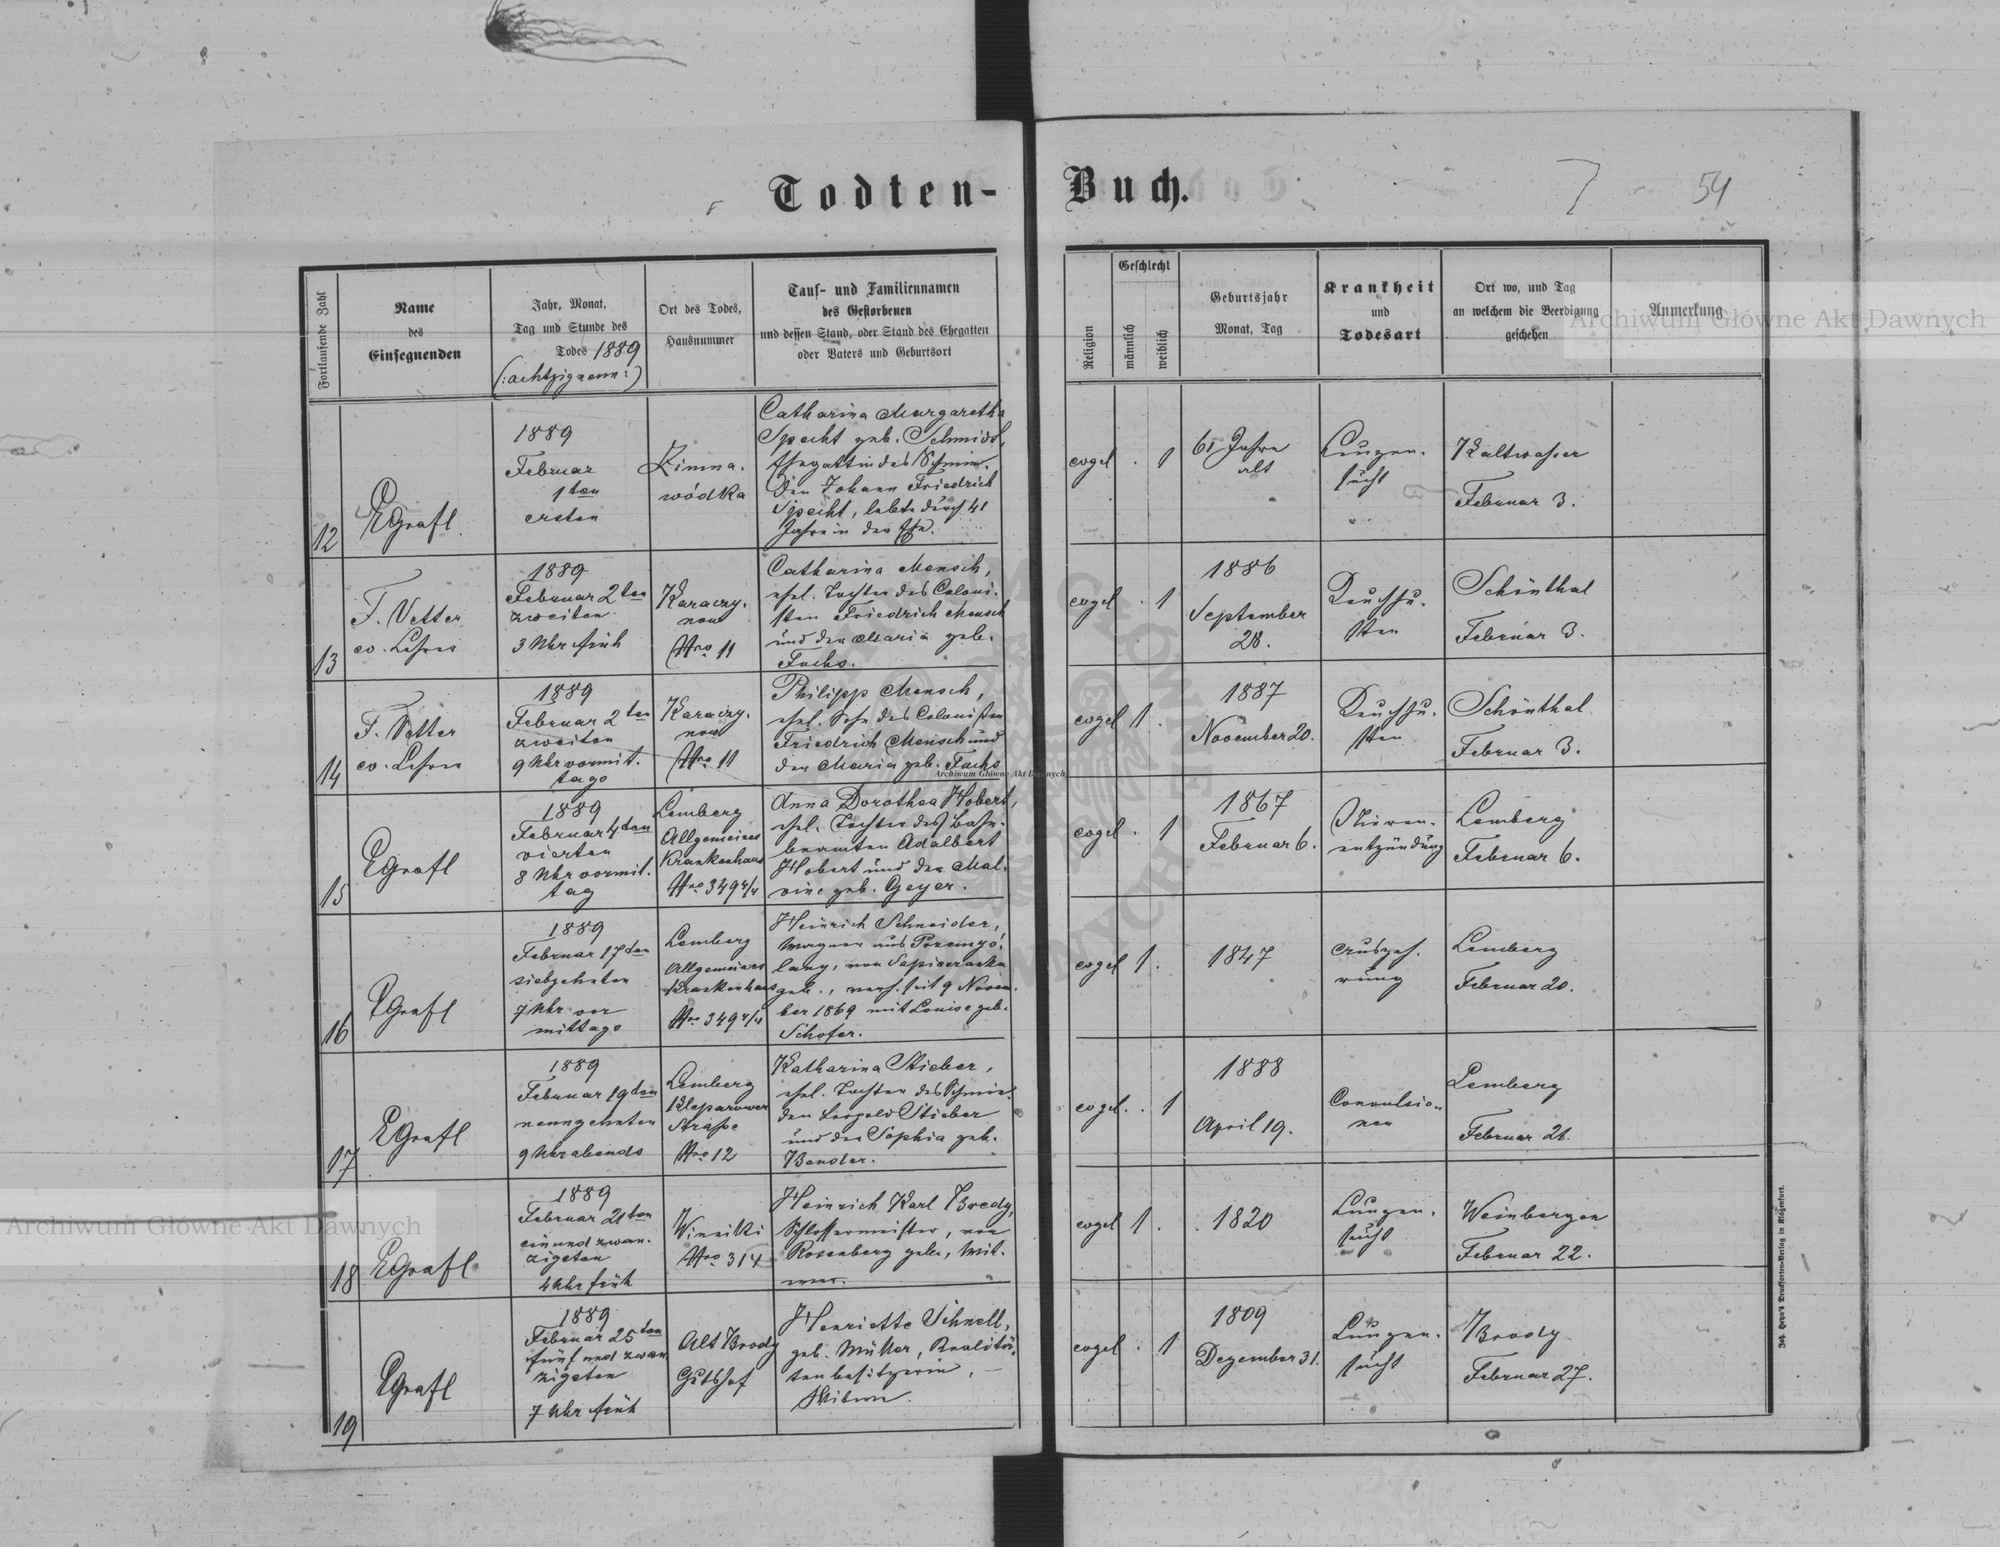 Todten-Buch.
54
Fortlaufende Zahl
Name
des
Einsegnenden
Jahr, Monat,
Tag und Stunde des
Todes 1889
(:achtzigneun:)
Ort des Todes,
Hausnummer
Tauf- und Familiennamen
des Gestorbenen
und dessen Stand, oder Stand des Ehegatten
oder Vaters und Geburtsort
Religion
Geschlecht
männlich
weiblich
Geburtsjahr
Monat, Tag
Krankheit
und
Todesart
Ort wo, und Tag
an welchem die Beerdigung
geschehen
Anmerkung
12
EGrafl
1889
Februar
1ten
ersten
Zimna.
wódka
Catharina Margaretha
Specht geb. Schmidt,
Ehegattin des Schmie.
den Johann Friedrich
Specht, lebte durch 41
Jahre in der Ehe.
evgel . 1
61 Jahre
alt
Lungen.
sucht
Kaltwasser
Februar 3.
13
F. Vetter
ev. Lehrer
1889
Februar 2ten
zweiten
3 Uhr früh
Karaczy.
now
Nro 11
Catharina Mensch,
ehel. Tochter des Coloni.
sten Friedrich Mensch
und der Maria geb.
Fuchs.
evgel . 1
1886
September
28.
Keuchhu.
sten
Schönthal
Februar 3.
14
F. Vetter
ev. Lehrer
1889
Februar 2ten
zweiten
9 Uhr vormit.
tags
Karaczy.
now
Nro 11
Philipp Mensch,
ehel. Sohn des Colonisten
Friedrich Mensch und
der Maria geb. Fuchs
evgel 1 .
1887
November 20.
Keuchhu.
sten
Schönthal
Februar 3.
15
EGrafl
1889
Februar 4ten
vierten
8 Uhr vormit.
tag
Lemberg
Allgemeines
Krankenhaus
Nro 349 4/4
Anna Dorothea Hobert,
ehel. Tochter des Bahn.
beamten Adalbert
Hobert und der Mal.
vine geb. Geyer.
evgel . 1
1867
Februar 6.
Nieren.
entzündung
Lemberg
Februar 6.
16
EGrafl
1889
Februar 17ten
siebzehnten
7 Uhr vor
mittags
Lemberg
Allgemeines
Krankenhaus
Nro 349 4/4
Heinrich Schneider,
Wagner aus
geb., verh. seit 9 Novem.
ber 1869 mit Louise geb.
Schofer.
evgel 1 .
1847
Auszeh.
rung
Lemberg
Februar 20.
17
EGrafl
1889
Februar 19ten
neunzehnten
9 Uhr abends
Lemberg
Kleparower
Strasse
Nro 12
Katharina Stieber,
ehel. Tochter des Schmie.
den Leopold Stieber
und der Sophia geb.
Bender.
evgel. . 1
1888
April 19.
Convulsio
nen
Lemberg
Februar 21.
18
EGrafl
1889
Februar 21ten
einundzwan.
zigsten
4 Uhr früh
Winniki
Nro 314
Heinrich Karl Bredy,
Schlossermeister, von
Rosenberg geb., Wit.
wer.
evgel 1 .
1820
Lungen.
sucht
Weinbergen
Februar 22.
19
EGrafl
1889
Februar 25ten
fünf und zwan
zigsten
7 Uhr früh
Alt Brody
Gutshof
Henriette Schnell,
geb. Müller, Realitä.
tenbesitzerin,
Witwe.
evgel . 1
1809
Dezember 31.
Lungen.
sucht
Brody
Februar 27.
Archiwum Główne Akt Dawnych
Archiwum Główne Akt Dawnych
Archiwum Główne Akt Dawnych
Joh. Heyn's Drucksorten-Verlag in Klagenfurt.